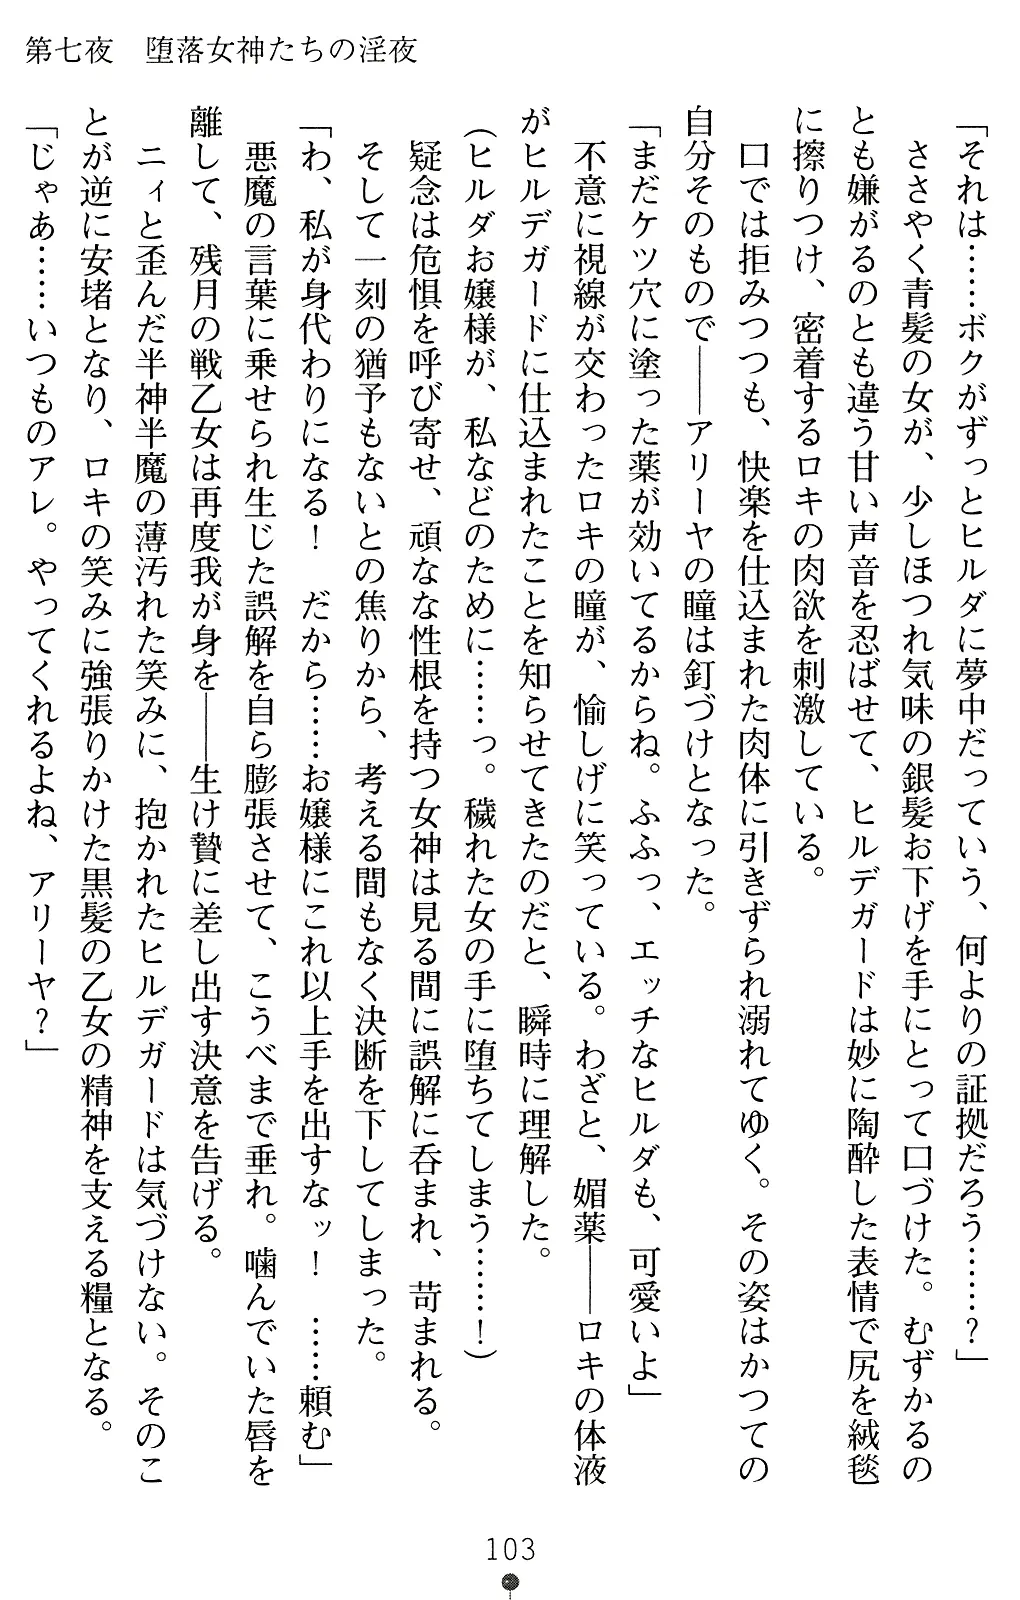 第七夜　堕落女神たちの淫夜
「それは……ボクがずっとヒルダに夢中だっていう、何よりの証拠だろう……？」
　ささやく青髪の女が、少しほつれ気味の銀髪お下げを手にとって口づけた。むずかるの
とも嫌がるのとも違う甘い声音を忍ばせて、ヒルデガードは妙に陶酔した表情で尻を絨毯
に擦りつけ、密着するロキの肉欲を刺激している。
　口では拒みつつも、快楽を仕込まれた肉体に引きずられ溺れてゆく。その姿はかつての
自分そのもので――アリーヤの瞳は釘づけとなった。
「まだケツ穴に塗った薬が効いてるからね。ふふっ、エッチなヒルダも、可愛いよ」
　不意に視線が交わったロキの瞳が、愉しげに笑っている。わざと、媚薬――ロキの体液
がヒルデガードに仕込まれたことを知らせてきたのだと、瞬時に理解した。
（ヒルダお嬢様が、私などのために……っ。穢れた女の手に堕ちてしまう……！）
　疑念は危惧を呼び寄せ、頑なな性根を持つ女神は見る間に誤解に呑まれ、苛まれる。
　そして一刻の猶予もないとの焦りから、考える間もなく決断を下してしまった。
「わ、私が身代わりになる！　だから……お嬢様にこれ以上手を出すなッ！　……頼む」
　悪魔の言葉に乗せられ生じた誤解を自ら膨張させて、こうべまで垂れ。噛んでいた唇を
離して、残月の戦乙女は再度我が身を――生け贄に差し出す決意を告げる。
　ニィと歪んだ半神半魔の薄汚れた笑みに、抱かれたヒルデガードは気づけない。そのこ
とが逆に安堵となり、ロキの笑みに強張りかけた黒髪の乙女の精神を支える糧となる。
「じゃあ……いつものアレ。やってくれるよね、アリーヤ？」
103